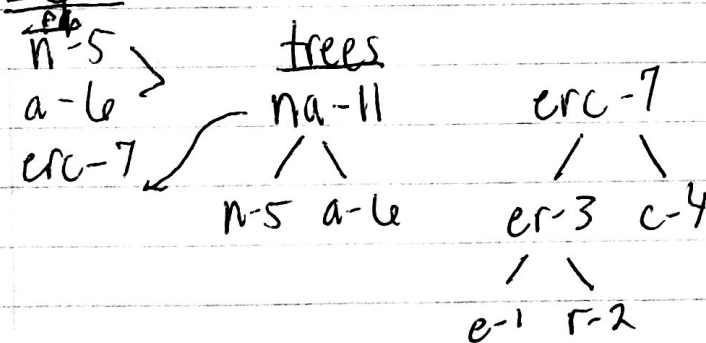 n-5
a-6
erc-7
trees
na-11
n-5 a-6
erc-7
er-3 c-4
e-1 r-2